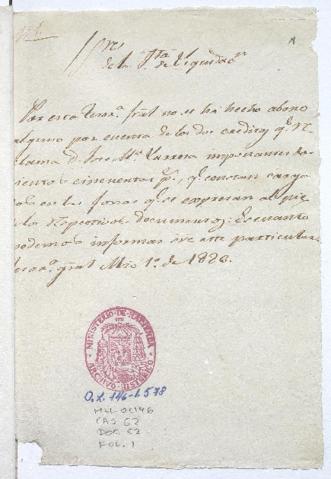 S.res
de la Jta. de Liquidacn.
Por esta Tesora. gral. no se ha hecho abono
alguno por cuenta de los dos creditos qe. re
lama D. Jose Ma. importantes
cientos cincuenta ps., qe. constan
os en las fojas qe. se expresan al pie
los respectivos documentos: Es cuanto
podemos informar sre. este particular.
gral. 1o. de 1826.
MINISTERIO-DE-HACIENDA
ARCHIVO-HISTORICO
O.L. 146-L578
MH-OL146
CAJ 62
DOC 52
FOL. 1